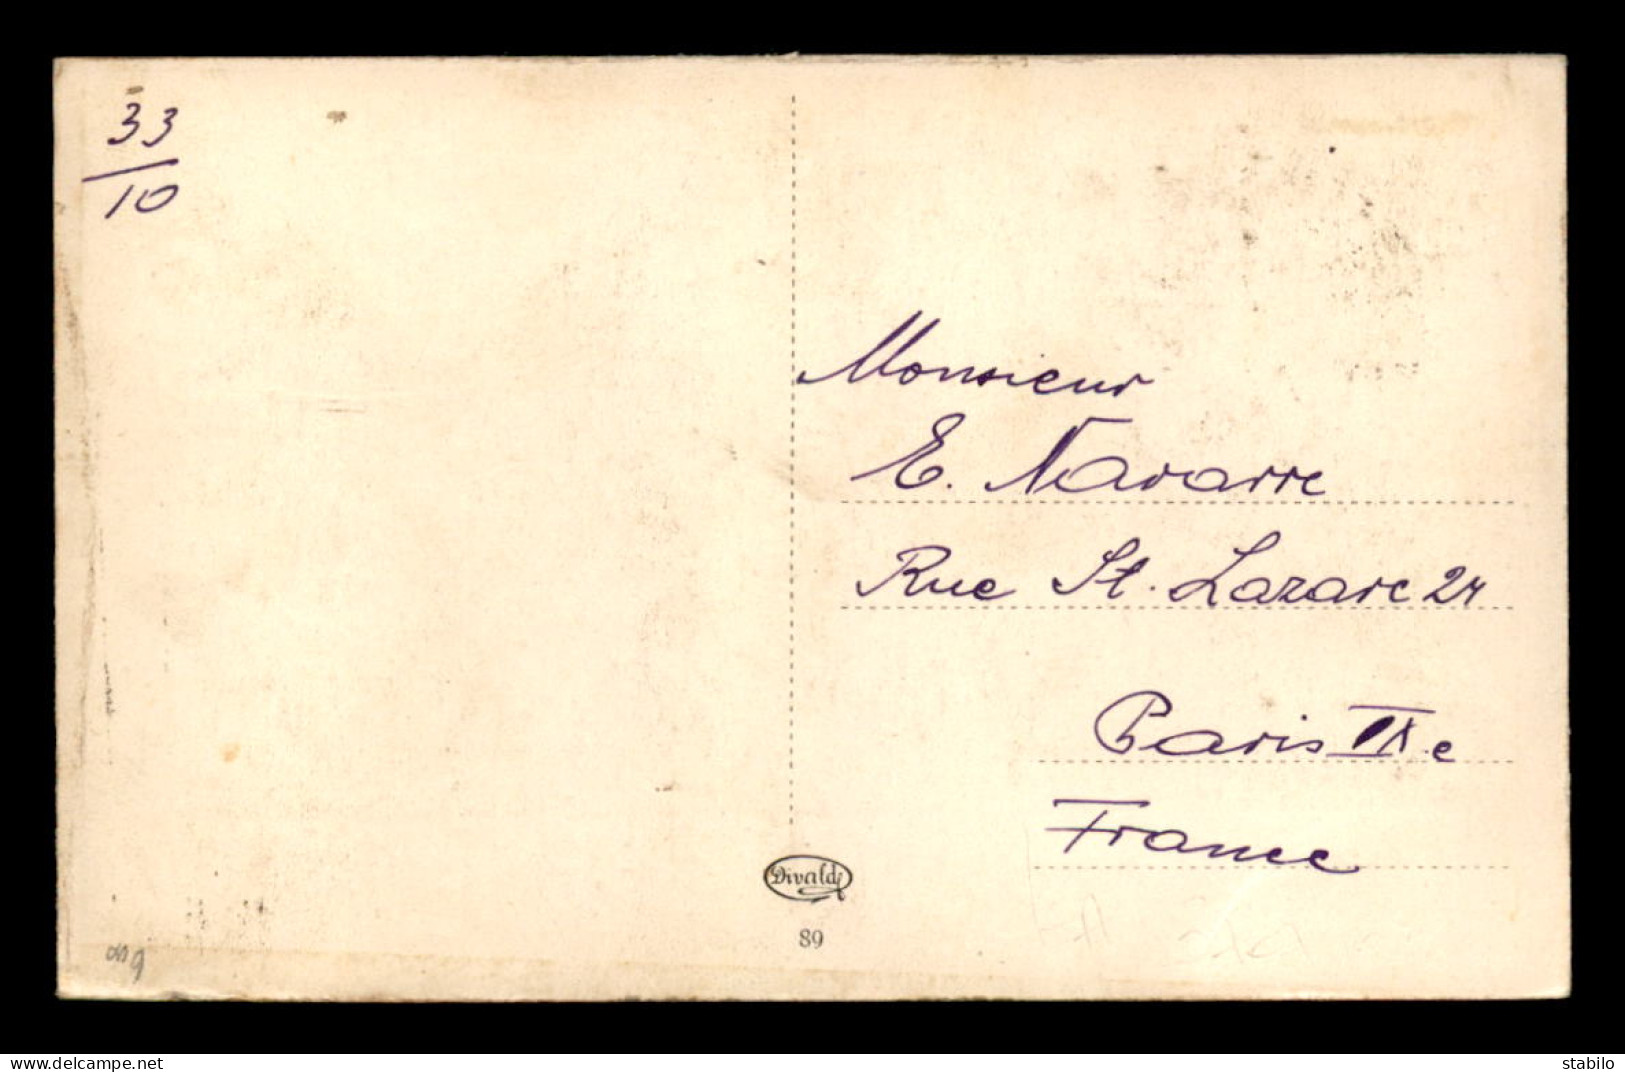 33
10
Monsieur
E. Navarre
Rue St. Lazare 24
Paris IX e
France
Divald
89
www.delcampe.net
stabilo